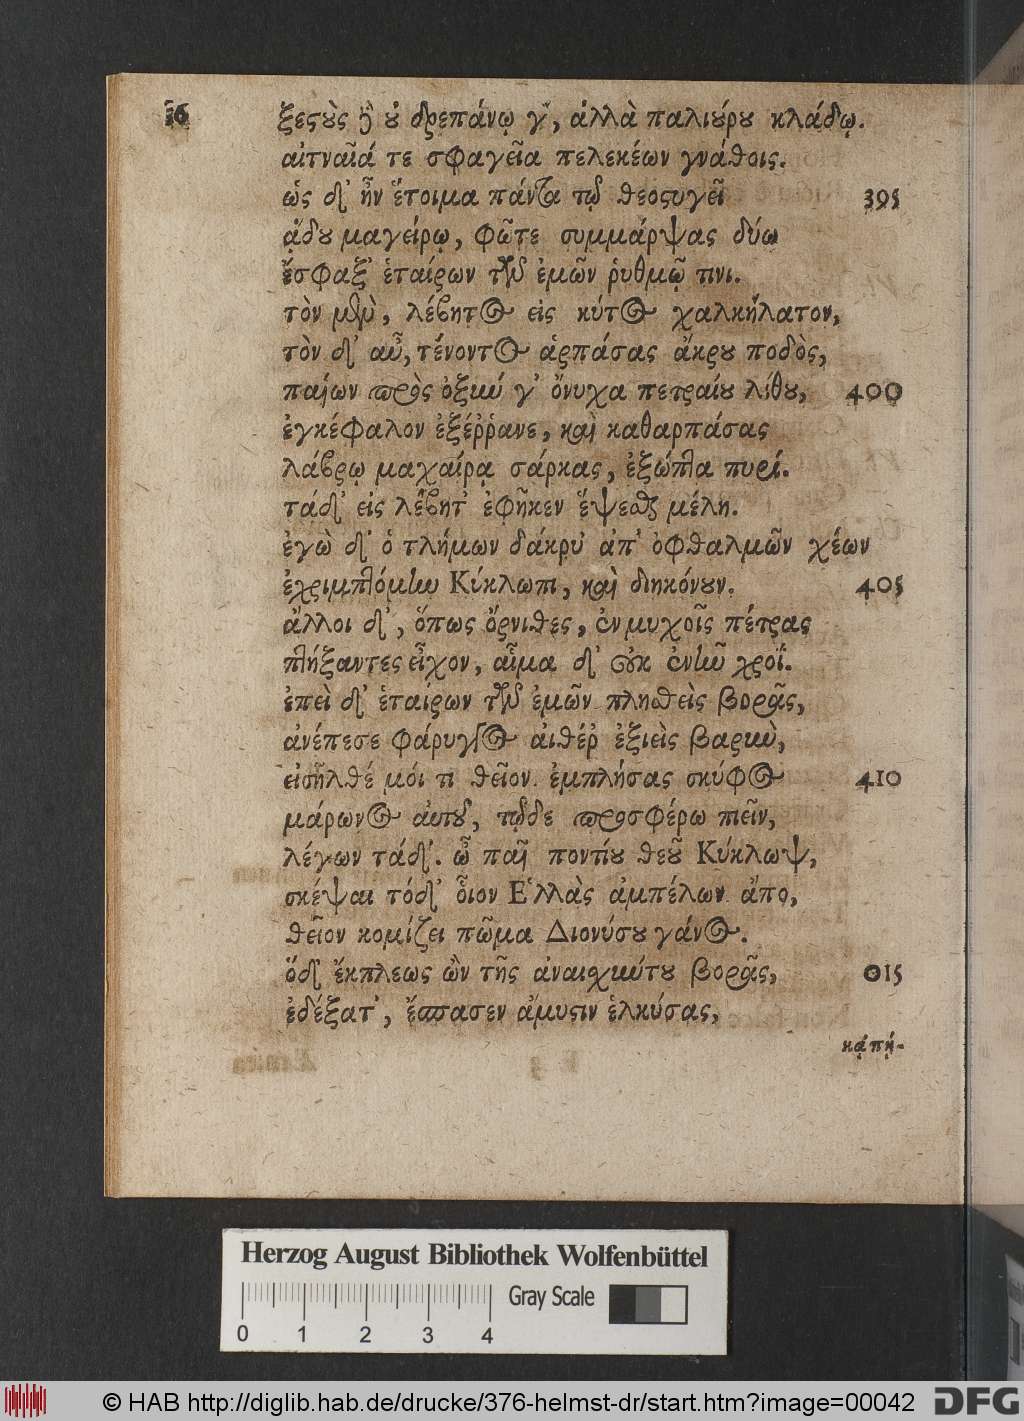 36
ξεςοὺς δὲ οὐ δρεπάνῳ γ', ἀλλὰ παλιούρου κλάδῳ.
αἰτναῖά τε σφαγεῖα πελεκέων γνάθοις.
ὡς δ' ἦν ἕτοιμα πάντα τῷ θεοςυγεῖ 395
ᾅδου μαγείρῳ, φῶτε συμμάρψας δύω
ἔσφαξ' ἑταίρων τῶν ἐμῶν ῥυθμῷ τινι.
τὸν μὲν, λέβητος εἰς κύτος χαλκήλατον,
τὸν δ' αὖ, τένοντος ἁρπάσας ἄκρου ποδὸς,
παίων πρὸς ὀξὺν γ' ὄνυχα πετραίου λίθου, 400
ἐγκέφαλον ἐξέῤῥανε, καὶ καθαρπάσας
λάβρῳ μαχαίρᾳ σάρκας, ἐξώπτα πυρί.
τάδ' εἰς λέβητ' ἐφῆκεν ἕψεσθαι μέλη.
ἐγὼ δ' ὁ τλήμων δάκρυ' ἀπ' ὀφθαλμῶν χέων
ἐχριμπτόμην Κύκλωπι, καὶ διηκόνουν. 405
ἄλλοι δ', ὅπως ὄρνιθες, ἐν μυχοῖς πέτρας
πτήξαντες εἶχον, αἷμα δ' οὐκ ἐνῆν χροΐ.
ἐπεὶ δ' ἑταίρων τῶν ἐμῶν πληθεὶς βορᾶς,
ἀνέπεσε φάρυγγος αἰθέρ' ἐξιεὶς βαρὺν,
εἰσῆλθέ μοί τι θεῖον. ἐμπλήσας σκύφος 410
μάρωνος αὐτοῦ, τῷδε προσφέρω πιεῖν,
λέγων τάδ'. ὦ παῖ ποντίου θεοῦ Κύκλωψ,
σκέψαι τόδ' οἷον Ἑλλὰς ἀμπέλων ἄπο,
θεῖον κομίζει πῶμα Διονύσου γάνος.
ὅδ' ἔκπλεως ὢν τῆς ἀναισχύντου βορᾶς, 015
ἐδέξατ', ἔσπασεν ἄμυςιν ἑλκύσας,
κᾀπῄ-
Herzog August Bibliothek Wolfenbüttel
Gray Scale
0 1 2 3 4
© HAB http://diglib.hab.de/drucke/376-helmst-dr/start.htm?image=00042
DFG